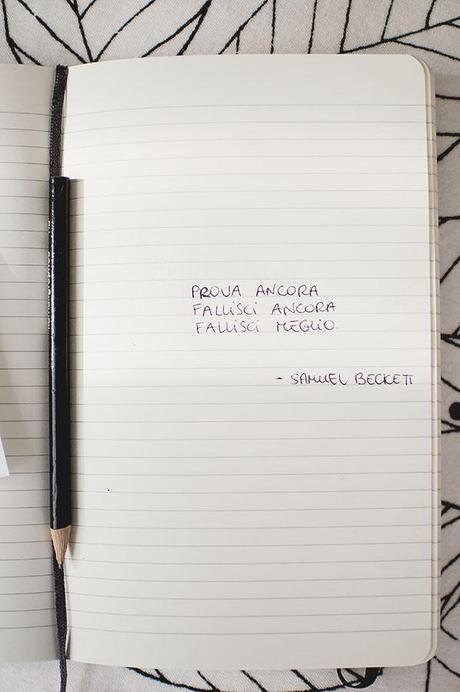 PROVA ANCORA
FALLISCI ANCORA
FALLISCI MEGLIO.
- SAMUEL BECKETT